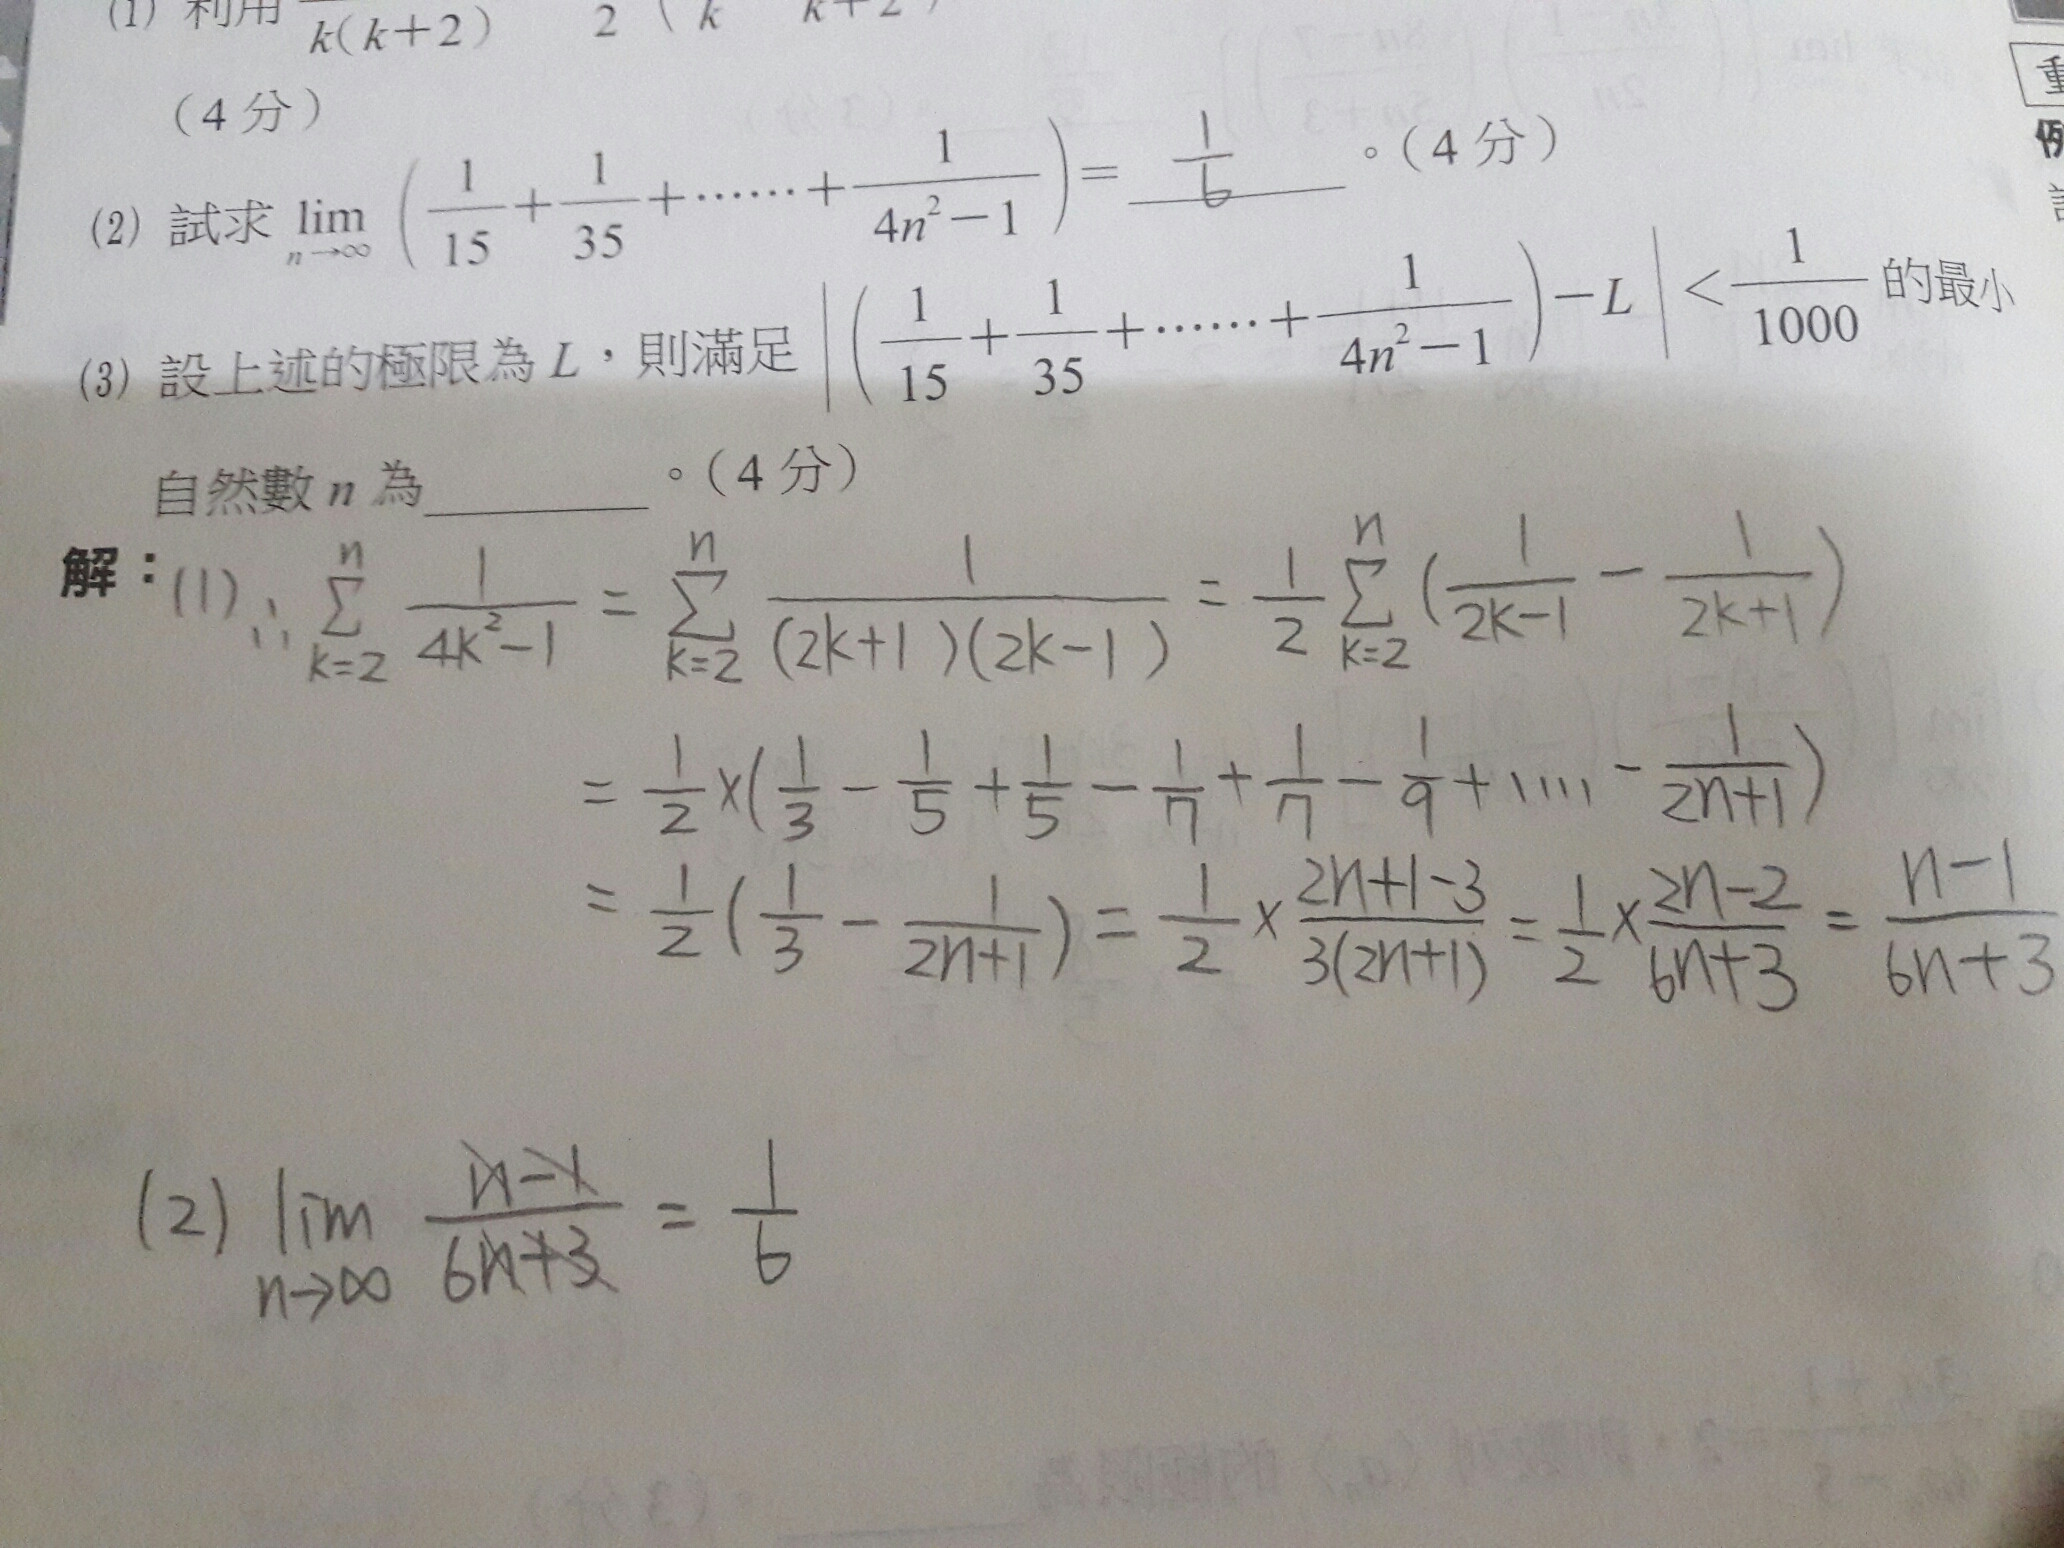 (1) 利用 k(k+2) 2 ( k k+2 )
(4分)
(2) 試求 lim n→∞ ( 1/15 + 1/35 + …… + 1/(4n²−1) ) = 1/6 。(4分)
(3) 設上述的極限為 L，則滿足 | ( 1/15 + 1/35 + …… + 1/(4n²−1) ) − L | < 1/1000 的最小
自然數 n 為 ______ 。(4分)
解：(1) ∴ Σ k=2 n 1/(4k²−1) = Σ k=2 n 1/((2k+1)(2k−1)) = 1/2 Σ k=2 n ( 1/(2k−1) − 1/(2k+1) )
= 1/2 × ( 1/3 − 1/5 + 1/5 − 1/7 + 1/7 − 1/9 + .... − 1/(2n+1) )
= 1/2 ( 1/3 − 1/(2n+1) ) = 1/2 × (2n+1−3)/(3(2n+1)) = 1/2 × (2n−2)/(6n+3) = (n−1)/(6n+3)
(2) lim n→∞ (n−1)/(6n+3) = 1/6
重
例